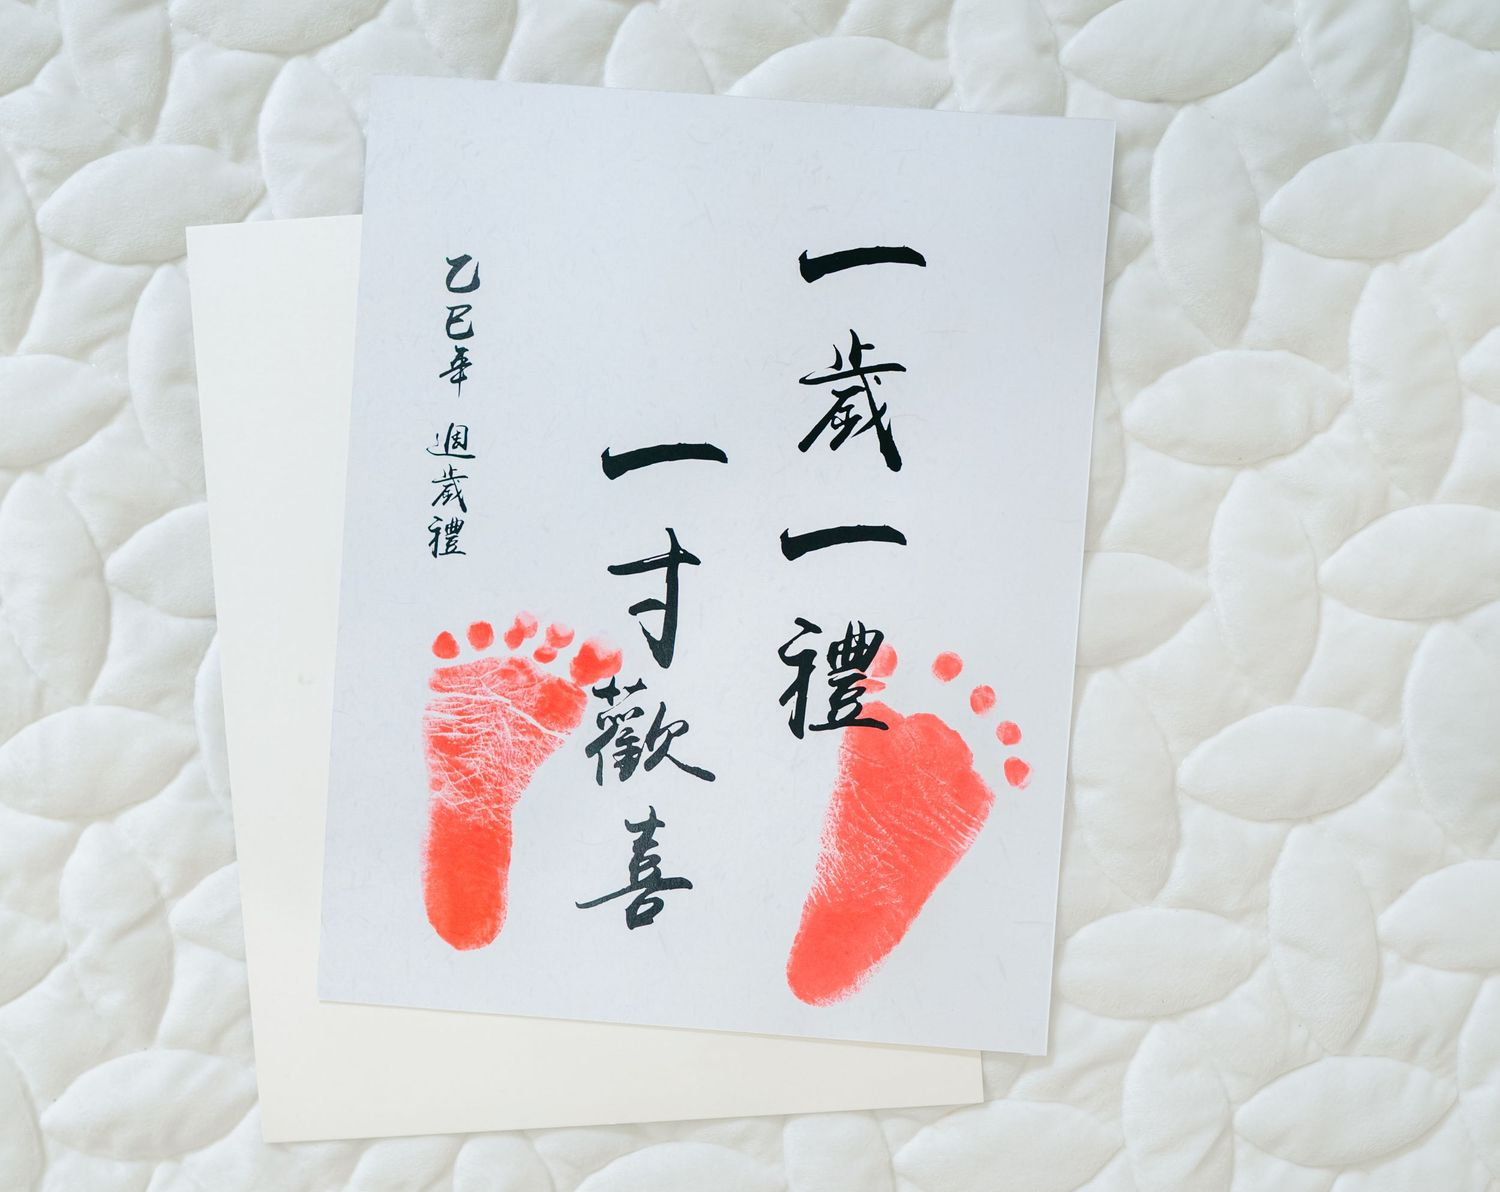 一歲一禮
一寸歡喜
乙巳年 週歲禮